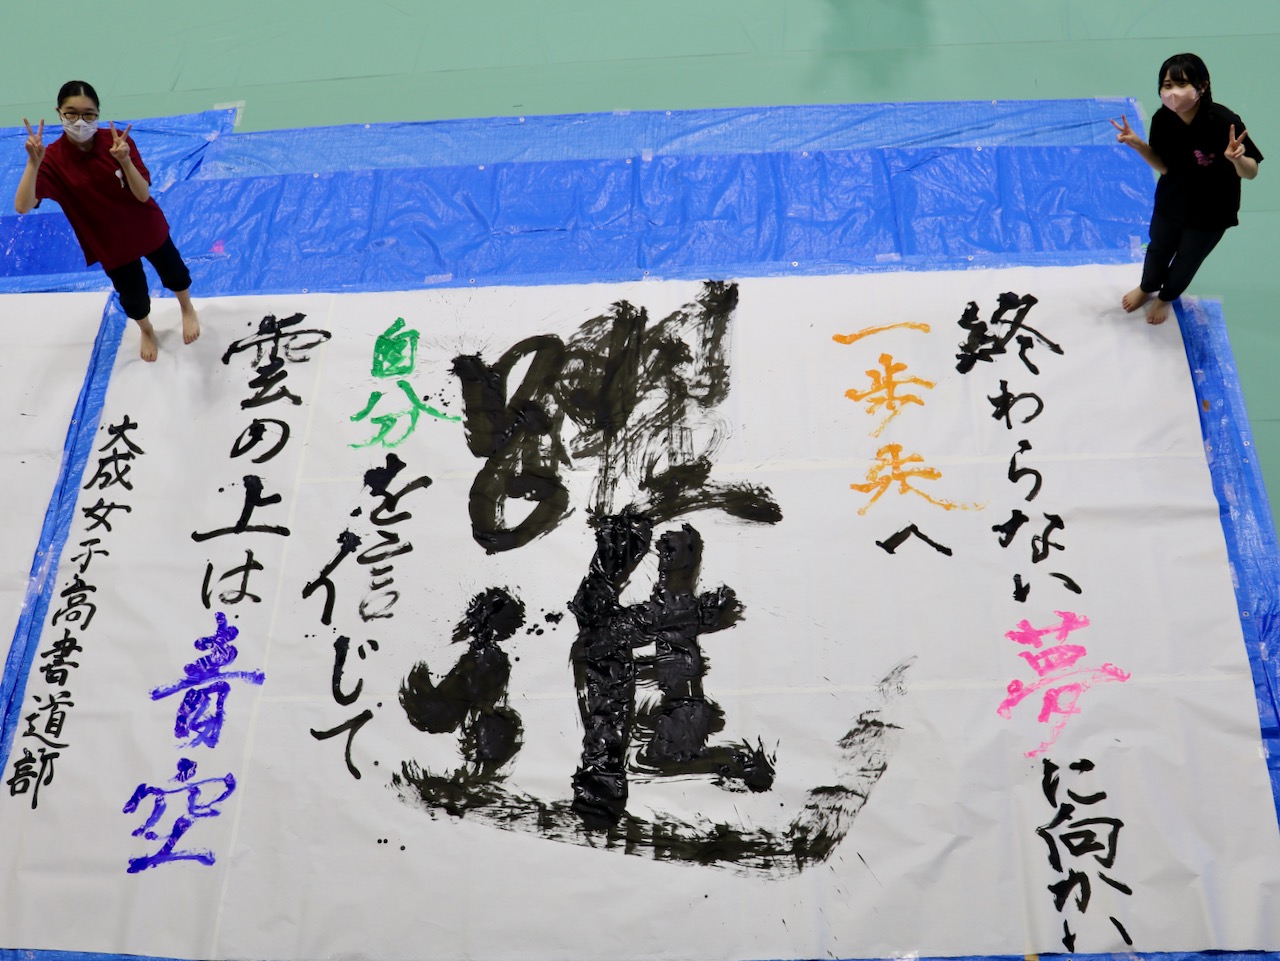 終わらない夢に向かい
一歩先へ
躍進
自分を信じて
雲の上は青空
大成女子高書道部